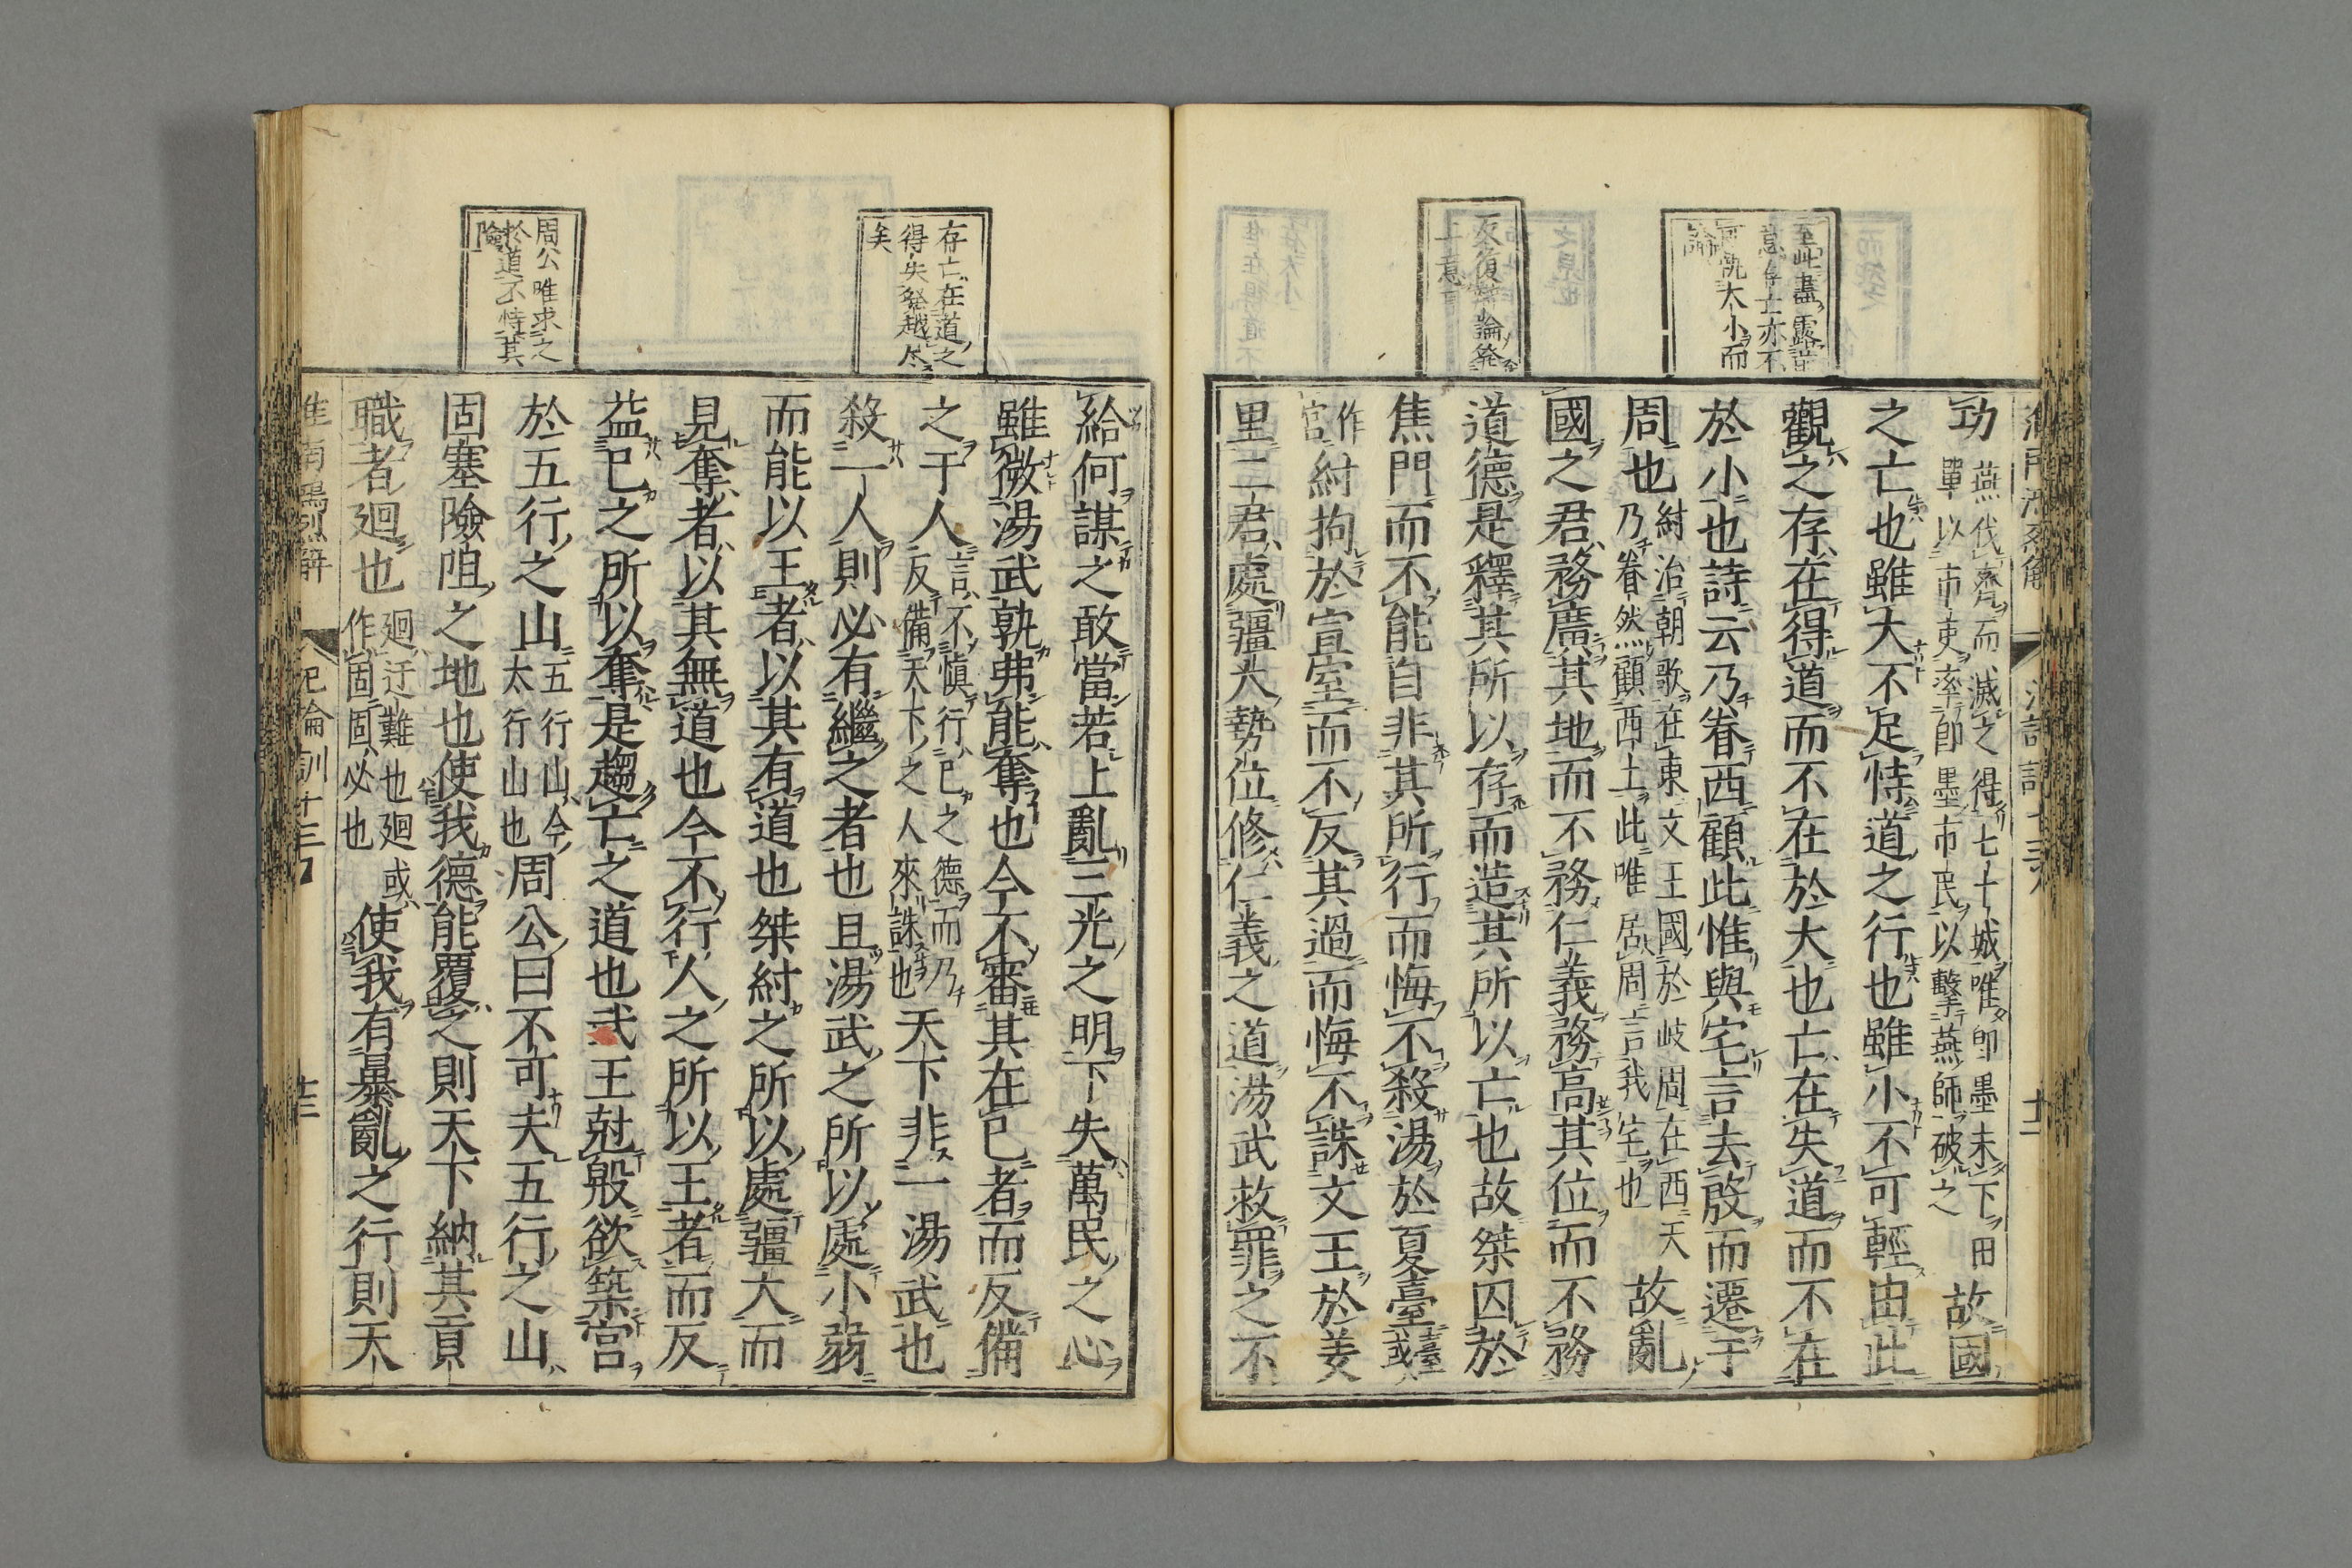 至此盡露葢
意存亡亦不
可執大小而
論
反復論発
上意
功燕伐齊而滅之得七十城唯即墨未下田單以市吏率即墨市民以擊燕師破之故國
之亡也雖大不足恃道之行也雖小不可輕由此
觀之存在得道而不在於大也亡在失道而不在
於小也詩云乃眷西顧此惟與宅言去殷而遷于
周也紂治朝歌在東文王國於岐周在西天乃眷然顧西土此唯居周言我宅也故亂
國之君務廣其地而不務仁義務高其位而不務
道德是釋其所以存而造其所以亡也故桀囚於
焦門而不能自非其所行而悔不殺湯於夏臺臺或
作宮紂拘於宣室而不反其過而悔不誅文王於羑
里二君處彊大勢位修仁義之道湯武救罪之不
存亡在道之
得失発越尽
矣
周公唯求之
於道不恃其
險
給何謀之敢當若上亂三光之明下失萬民之心
雖微湯武孰弗能奪也今不審其在己者而反備
之于人言不慎行己之德而乃反備天下之人來誅也天下非一湯武也
殺一人則必有繼之者也且湯武之所以處小弱
而能以王者以其有道也桀紂之所以處彊大而
見奪者以其無道也今不行人之所以王者而反
益己之所以奪是趨亡之道也武王尅殷欲築宮
於五行之山五行山今太行山也周公曰不可夫五行之山
固塞險阻之地也使我德能覆之則天下納其貢
職者廻也廻迂難也廻或作固固必也使我有暴亂之行則天
淮南鴻烈解 氾論訓十三 十三